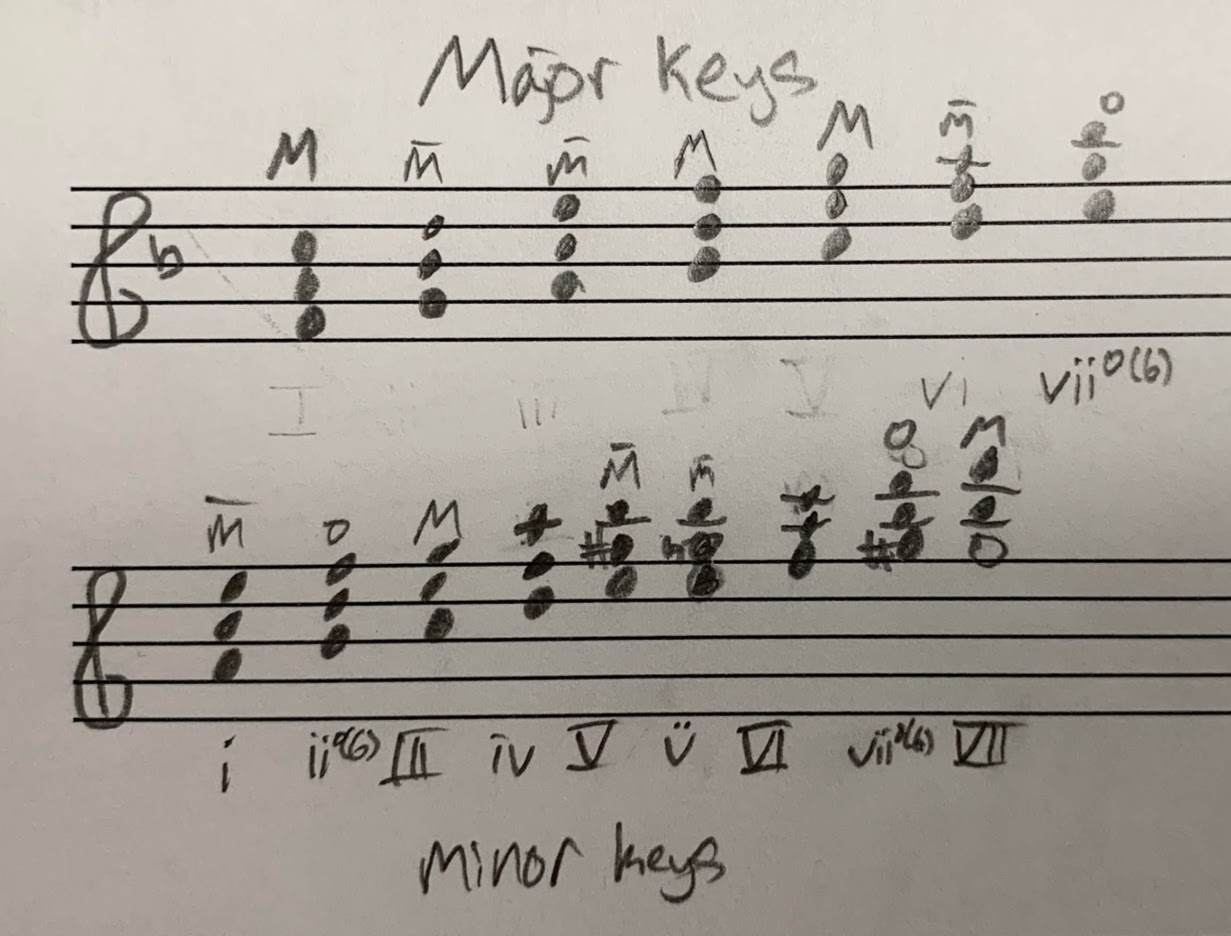 Major Keys
M m̄ m̄ M M m̄ o
I iii IV V vi vii°(6)
m̄ o M M̄ m̄ o M
i ii°(6) III iv V v VI vii°(6) VII
minor keys